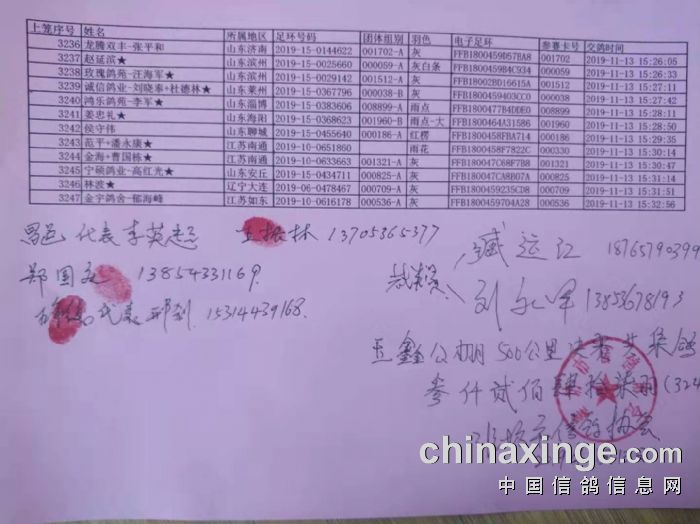 上笼序号 姓名 所属地区 足环号码 团体组别 羽色 电子足环 参赛卡号 交鸽时间
3236 龙腾双丰-张平和 山东济南 2019-15-0144622 001702-A 灰 FFB1800459D67BA8 001702 2019-11-13 15:26:05
3237 赵延滨★ 山东滨州 2019-15-0025660 000059-A 灰白条 FFB18004598B4C934 000059 2019-11-13 15:26:33
3238 玫瑰鸽苑-汪海军★ 山东滨州 2019-15-0029142 001512-A 灰 FFB18002BD16615A 001512 2019-11-13 15:27:11
3239 诚信鸽业-刘晓泰+杜德林★ 山东莱州 2019-15-0367796 000038-B 灰 FFB1800459403CC0 000038 2019-11-13 15:27:42
3240 鸿乐鸽苑-李军★ 山东淄博 2019-15-0383606 008899-A 雨点 FFB1800477B4DDE0 008899 2019-11-13 15:28:11
3241 姜忠礼★ 山东海阳 2019-15-0368623 001960-B 雨点-大 FFB1800464A31586 001960 2019-11-13 15:28:50
3242 侯守伟 山东聊城 2019-15-0455640 000186-A 红楞 FFB1800458FBA714 000186 2019-11-13 15:29:35
3243 范平+潘永康★ 江苏南通 2019-10-0651860 雨花 FFB1800458F7822C 2019-11-13 15:30:14
3244 金海+曹国栋★ 江苏南通 2019-10-0633663 001321-A 灰 FFB180047C68F7B8 001321 2019-11-13 15:30:47
3245 宁硕鸽业-高红光★ 山东安丘 2019-15-0434711 000825-A 灰 FFB180047CA8B07A 000825 2019-11-13 15:31:13
3246 林波★ 辽宁大连 2019-06-0478467 000709-A 灰 FFB1800459235CD8 000709 2019-11-13 15:31:51
3247 金宇鸽舍-郁海峰 江苏如东 2019-10-0616178 000536-A 灰 FFB1800459704A28 000536 2019-11-13 15:32:56
昌邑 代表 李英 王振林 13705365377
郑国 13854331169.
代表 邢 15314439168.
臧运江 18765790399
裁判员 刘 13853678193
玉鑫公棚500公里决赛共集鸽
叁仟贰佰肆拾柒羽(324
信鸽协会
chinaxinge.com
中国信鸽信息网